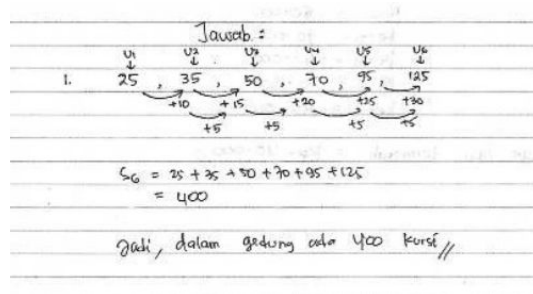 Jawab :
U1 U2 U3 U4 U5 U6
↓ ↓ ↓ ↓ ↓ ↓
1. 25 , 35 , 50 , 70 , 95 , 125
+10 +15 +20 +25 +30
+5 +5 +5 +5
S6 = 25 + 35 + 50 + 70 + 95 + 125
= 400
Jadi, dalam gedung ada 400 kursi //